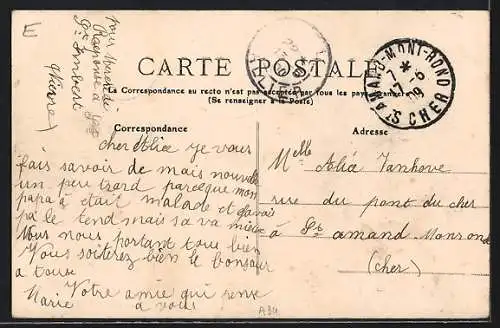 E
pour
Réponse à
Gte Imbert
(Nièvre)
CARTE POSTALE
La Correspondance au recto n'est pas acceptée par tous les pays étrangers
(Se renseigner à la Poste)
Correspondance
Adresse
ST AMAND-MONT-ROND
7 *
17 -6
09
CHER
cher Alia je vous
fais savoir de mais nouvelle
un peu tard parceque mon
papa a était malade et j'avais
pa le tend mais sa va mieux
Nous nous portant tous bien
Vous soiterez bien le bonsoir
a tous
Votre amie qui pense
Marie a vous
Melle Alia Vanhove
rue du pont du cher
à St amand Monrond
(cher)
A34